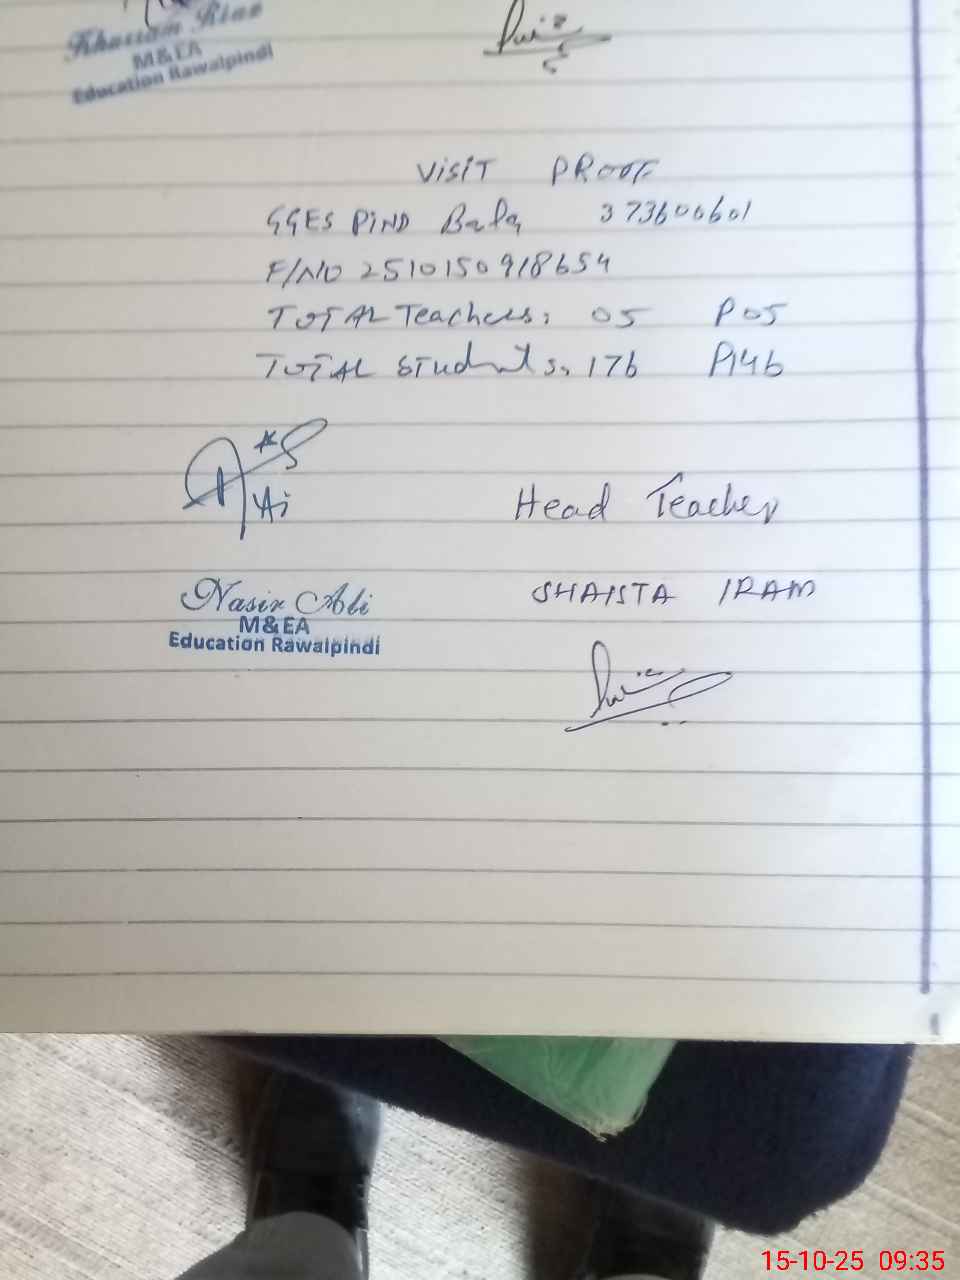 Khurram Riaz
M&EA
Education Rawalpindi
VISIT PROOF
GGES PIND 37360601
F/NO 2510150918654
TOTAL Teachers: 05 P05
TOTAL Students, 176 P146
Head Teacher
Nasir Ali
M&EA
Education Rawalpindi
SHAISTA IRAM
15-10-25 09:35